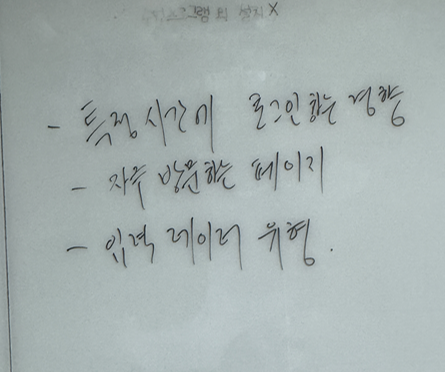 프로그램의 설치 X
- 특정 시간에 로그인하는 경향
- 자주 방문하는 페이지
- 입력 데이터 유형.